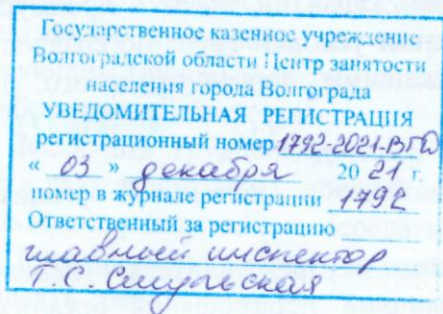 Государственное казенное учреждение
Волгоградской области Центр занятости
населения города Волгограда
УВЕДОМИТЕЛЬНАЯ РЕГИСТРАЦИЯ
регистрационный номер 1792-2021-ВГО
« 03 » декабря 20 21 г.
номер в журнале регистрации 1792
Ответственный за регистрацию
главный инспектор
Т.С.